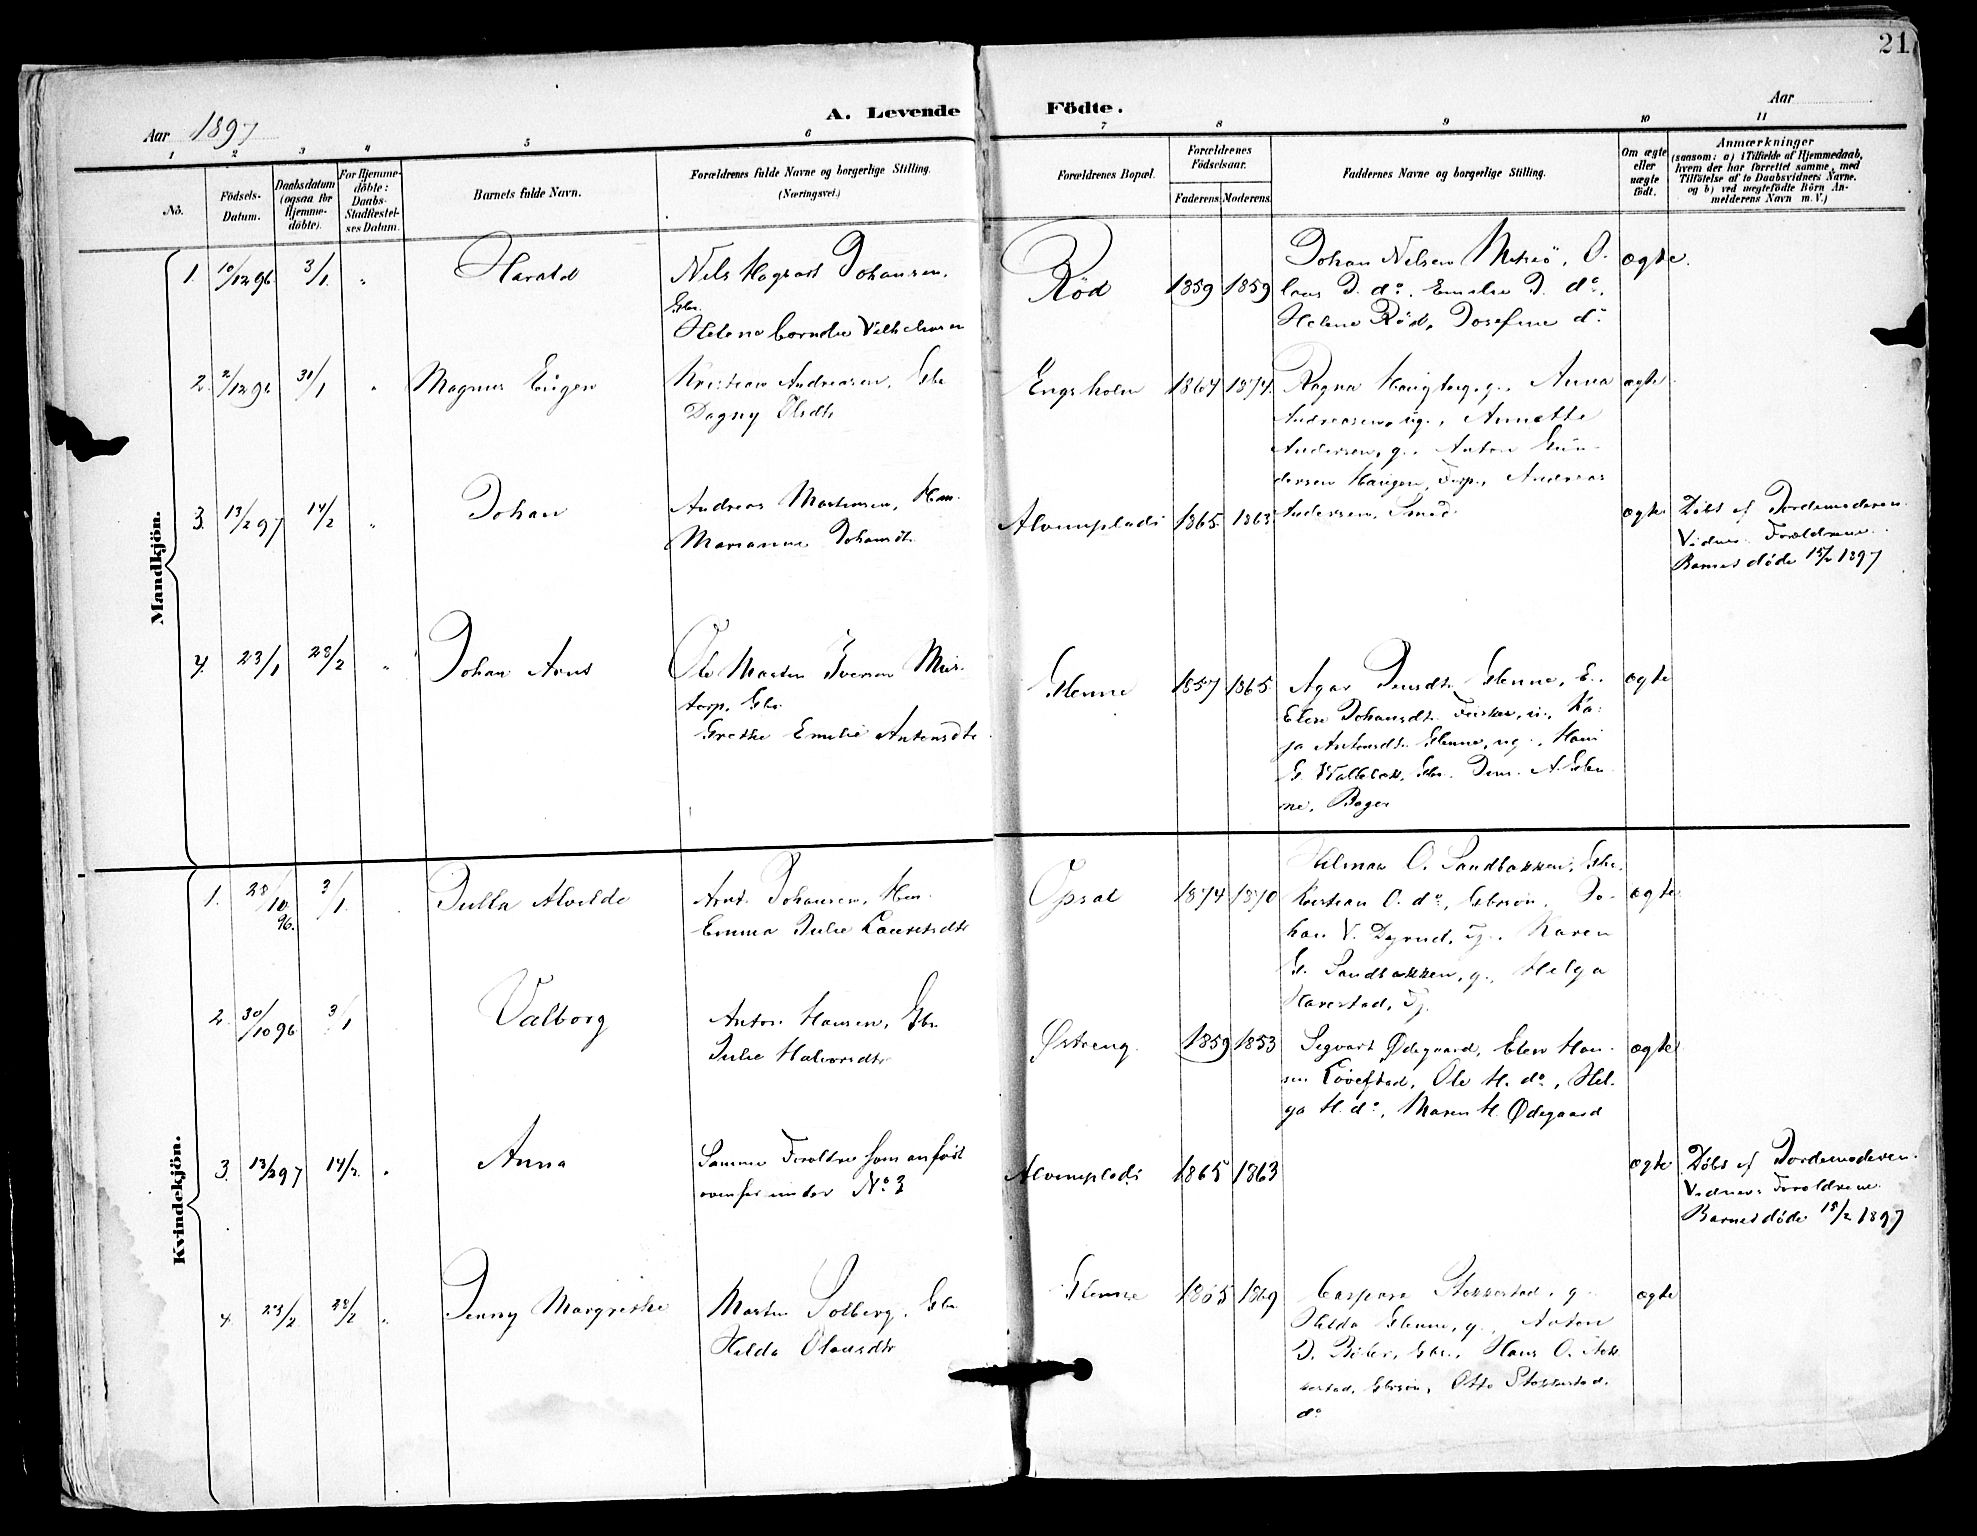 21
A. Levende Födte.
Aar 1897
Aar
1 2 3 4 5 6 7 8 9 10 11
Nö.
Födsels-Datum.
Daabsdatum (ogsaa for Hjemmedöbte).
For Hjemmedöbte: Daabs-Stadfæstelses Datum.
Barnets fulde Navn.
Forældrenes fulde Navne og borgerlige Stilling. (Næringsvei.)
Forældrenes Bopæl.
Forældrenes Födselsaar.
Faderens. Moderens.
Faddernes Navne og borgerlige Stilling.
Om ægte eller uægte födt.
Anmærkninger
(saasom: a) i Tilfælde af Hjemmedaab,
hvem der har forrettet samme, med
Tilföielse af to Daabsvidners Navne.
og b) ved uægtefödte Börn An-
melderens Navn m. V.)
Mandkjön.
1. 10/12 96 3/1 " Harald
Nils Hagbart Johansen,
Gbr.
Helene Cornelie Vilhelmsen
Röd 1859 1859
Johan Nilsen, O-
laus J. do, Emilie J. do,
Helene Röd, Josefine do
ægte.
2. 2/12 96 31/1 " Magnus Eugen
Kristian Andreasen, Gbr
Dagny Olsdtr
Engsholm 1867 1874
Ragna Haugtorp, g., Anna
Andreasen, ug., Annette
Andersen, g., Anton Gun-
dersen Haugen, Andreas
Andersen, Smed
ægte
3. 13/2 97 14/2 " Johan
Andreas Martinsen, Hm.
Marianne Johansdtr
Alvimplads 1865 1863
ægte
Döbt af Jordemoderen.
Vidner: Forældrene.
Barnet döde 15/2 1897
4. 23/1 28/2 " Johan Arnt
Ole Martin Iversen Mis-
torp, Gbr.
Grethe Emilie Antonsdtr.
Glenne 1857 1865
Agar Jensdtr Glenne, E.,
Elen Johansdtr, u., Ka-
ja Antonsdtr Glenne, ug., Hans
G. Gbr. Jens A. Glen-
ne, Bager
ægte
Kvindekjön.
1. 28/10 96. 3/1. Julla Alvilde
Arnt Johansen, Hm.
Emma Julie Lauritsdtr
Opsal 1874 1870
Hilmar O. Sandbakken, Gbr.
Kristian O. do, Gbrsön, Jo-
han V. Dyrud, Tj., Karen
G. Sandbakken, g., Helga
Harestad, Tj.
ægte
2. 30/10 96 3/1 Valborg
Anton Hansen, Gbr
Julie Halvorsdtr
Östeng. 1859 1853
Segvart Ödegaard, Elen Han-
sen Lövestad, Ole H. do, Hel-
ga H. do, Maren H. Ödegaard
ægte
3. 13/2 97 14/2. " Anna
Samme Forældre som anfört
ovenfor under No 3
Alvimplads 1865 1863
ægte
Döbt af Jordemoderen.
Vidner: Forældrene.
Barnet döde 15/2 1897
4. 23/2 28/2 " Jenny Margrethe
Martin Solberg, Gbr
Hilda Olausdtr
Glenne 1865 1869
Caspara Stokkestad, g.
Hilda Glenne, g., Anton
J. Gbr., Hans O. Stok-
kestad, Gbrsön, Otto Stokkestad,
do
ægte